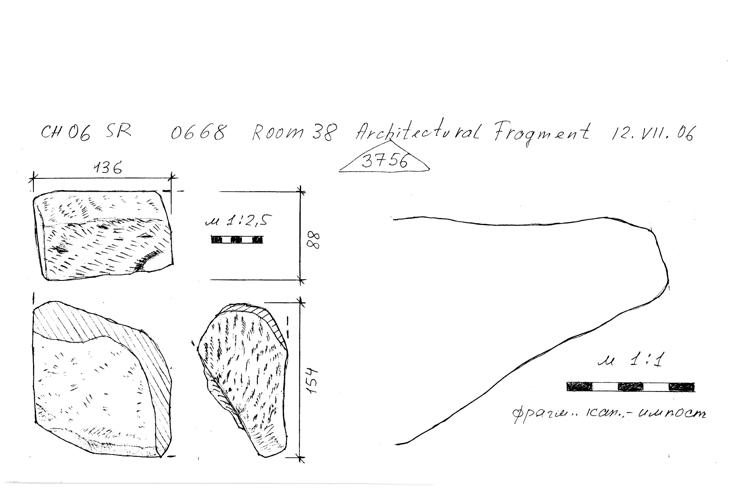 CH 06 SR 0668 Room 38 Architectural Fragment 12.VII.06
3756
136
м 1:2,5
88
154
м 1:1
фрагм.. кап.,- импост